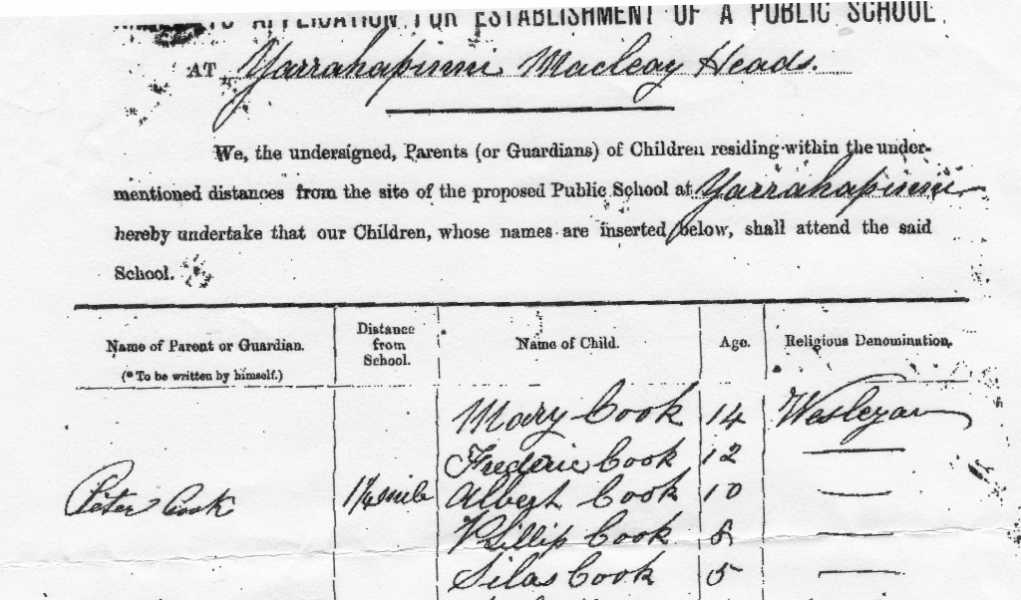 TO APPLICATION FOR ESTABLISHMENT OF A PUBLIC SCHOOL
AT Yarrahapinni Macleay Heads.
We, the undersigned, Parents (or Guardians) of Children residing within the under-
mentioned distances from the site of the proposed Public School at Yarrahapinni
hereby undertake that our Children, whose names are inserted below, shall attend the said
School.
Name of Parent or Guardian.
(* To be written by himself.)
Distance
from
School.
Name of Child.
Age.
Religious Denomination.
Mary Cook 14 Wesleyan
Frederic Cook 12 —
Peter Cook 1¼ mile Albert Cook 10 —
Phillip Cook 8 —
Silas Cook 5 —